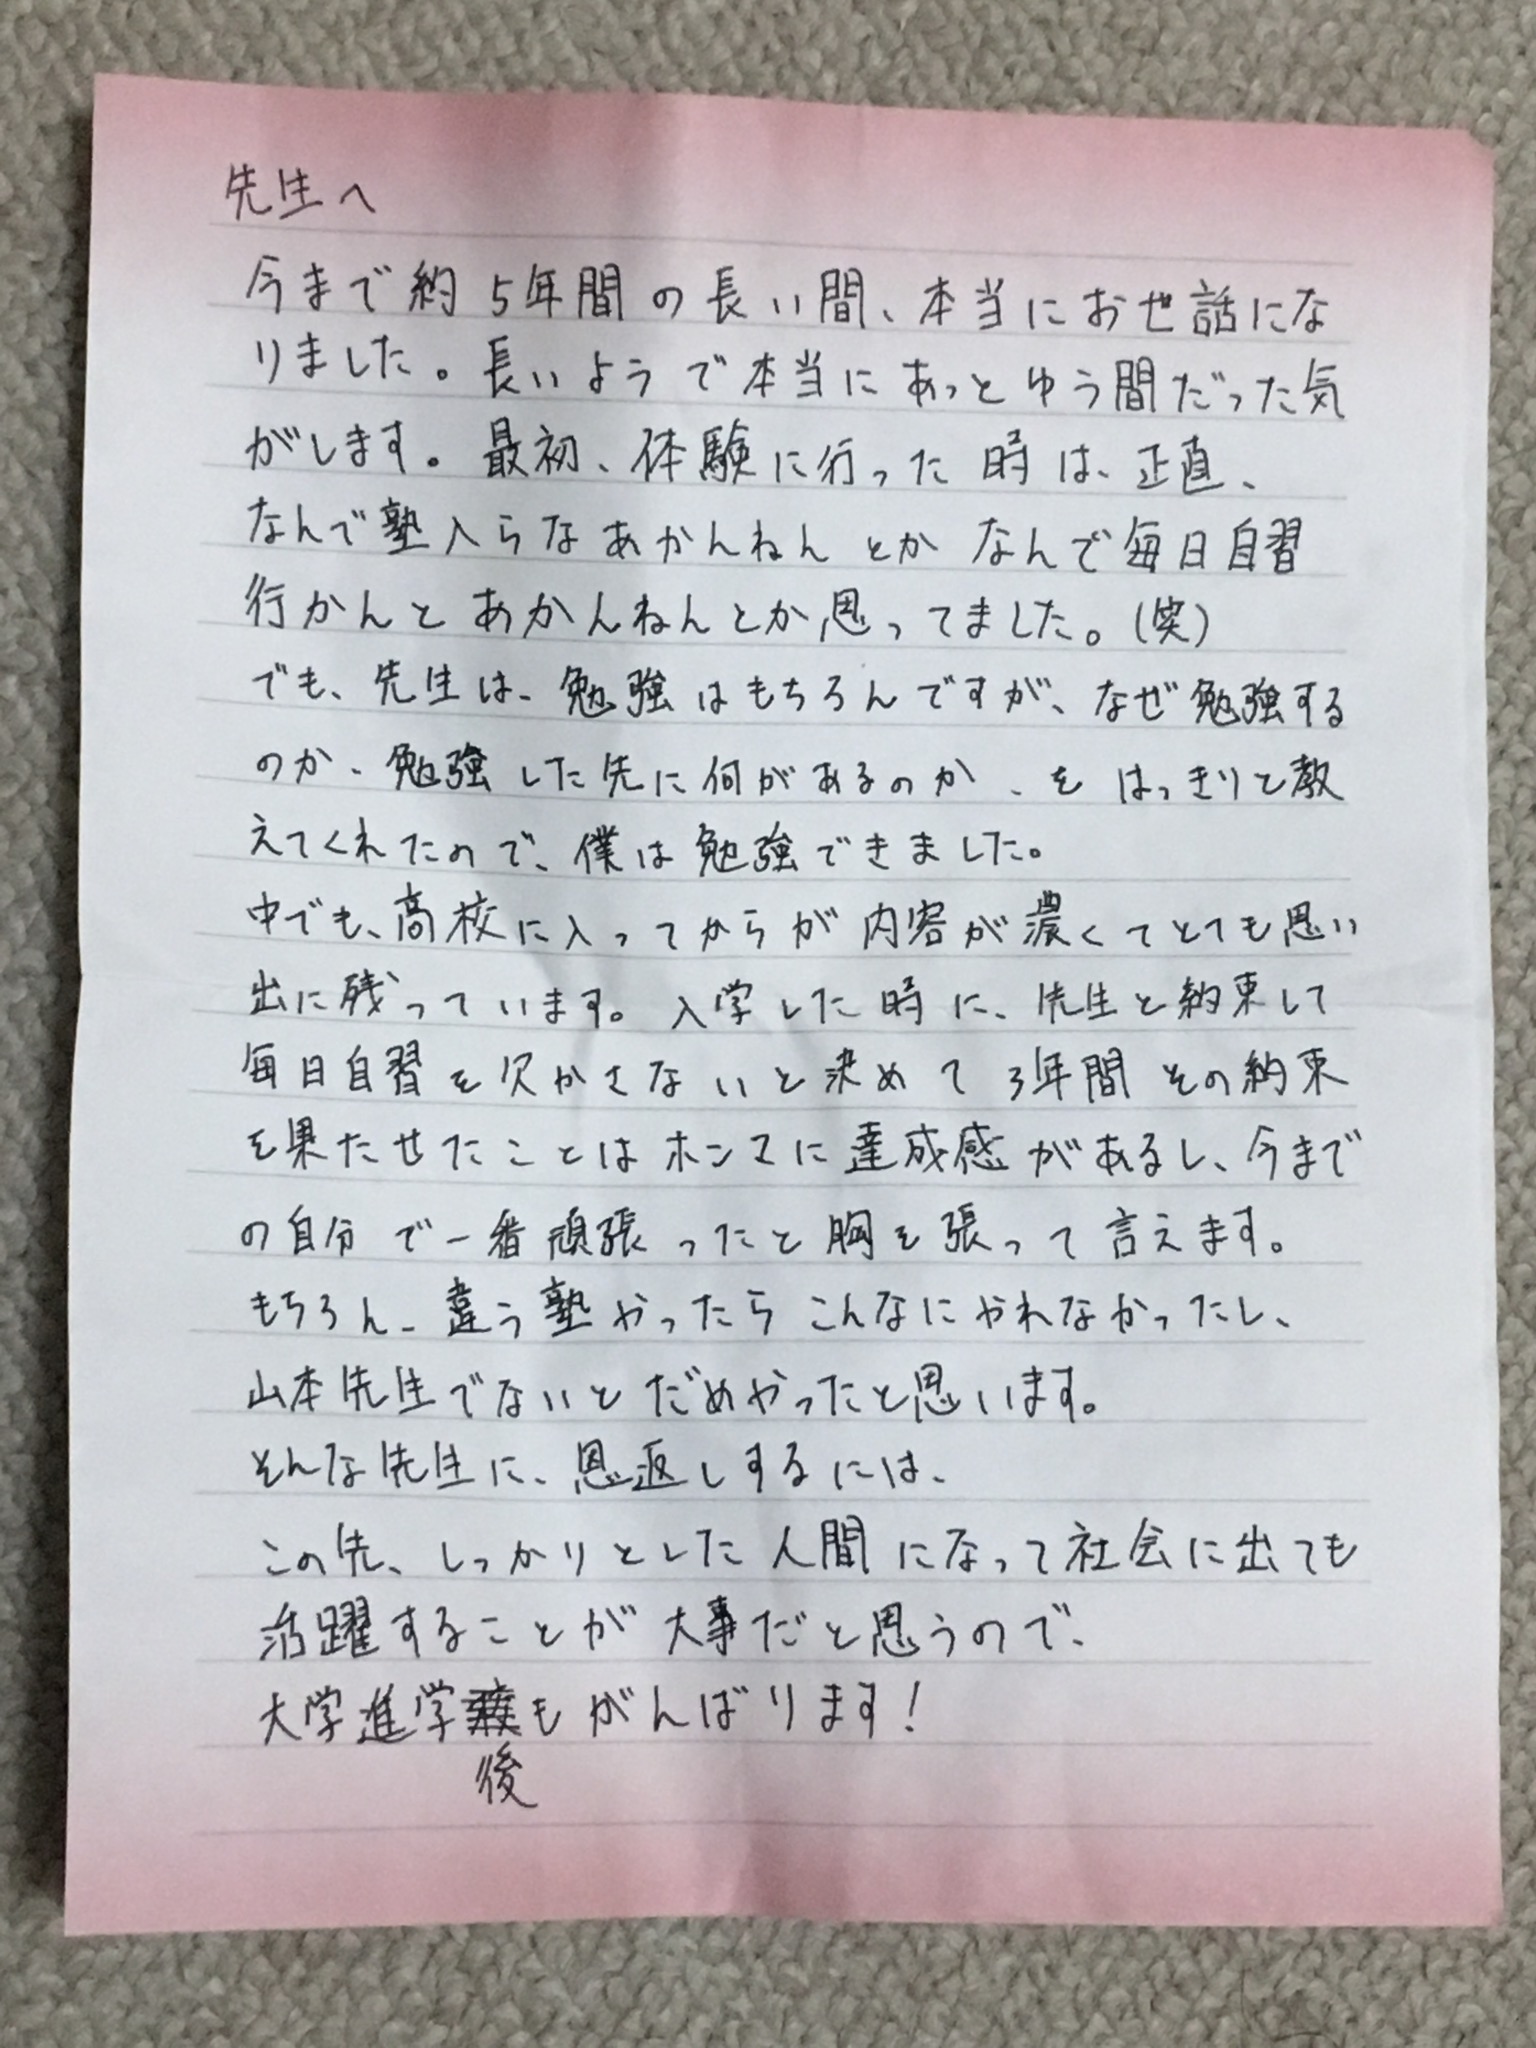 先生へ
今まで約5年間の長い間、本当にお世話にな
りました。長いようで本当にあっとゆう間だった気
がします。最初、体験に行った時は、正直、
なんで塾入らなあかんねんとかなんで毎日自習
行かんとあかんねんとか思ってました。(笑)
でも、先生は、勉強はもちろんですが、なぜ勉強する
のか、勉強した先に何があるのか、をはっきりと教
えてくれたので、僕は勉強できました。
中でも、高校に入ってからが内容が濃くてとても思い
出に残っています。入学した時に、先生と約束して
毎日自習を欠かさないと決めて3年間その約束
を果たせたことはホンマに達成感があるし、今まで
の自分で一番頑張ったと胸を張って言えます。
もちろん、違う塾やったらこんなにやれなかったし、
山本先生でないとだめやったと思います。
そんな先生に、恩返しするには、
この先、しっかりとした人間になって社会に出ても
活躍することが大事だと思うので、
大学進学もがんばります!
後